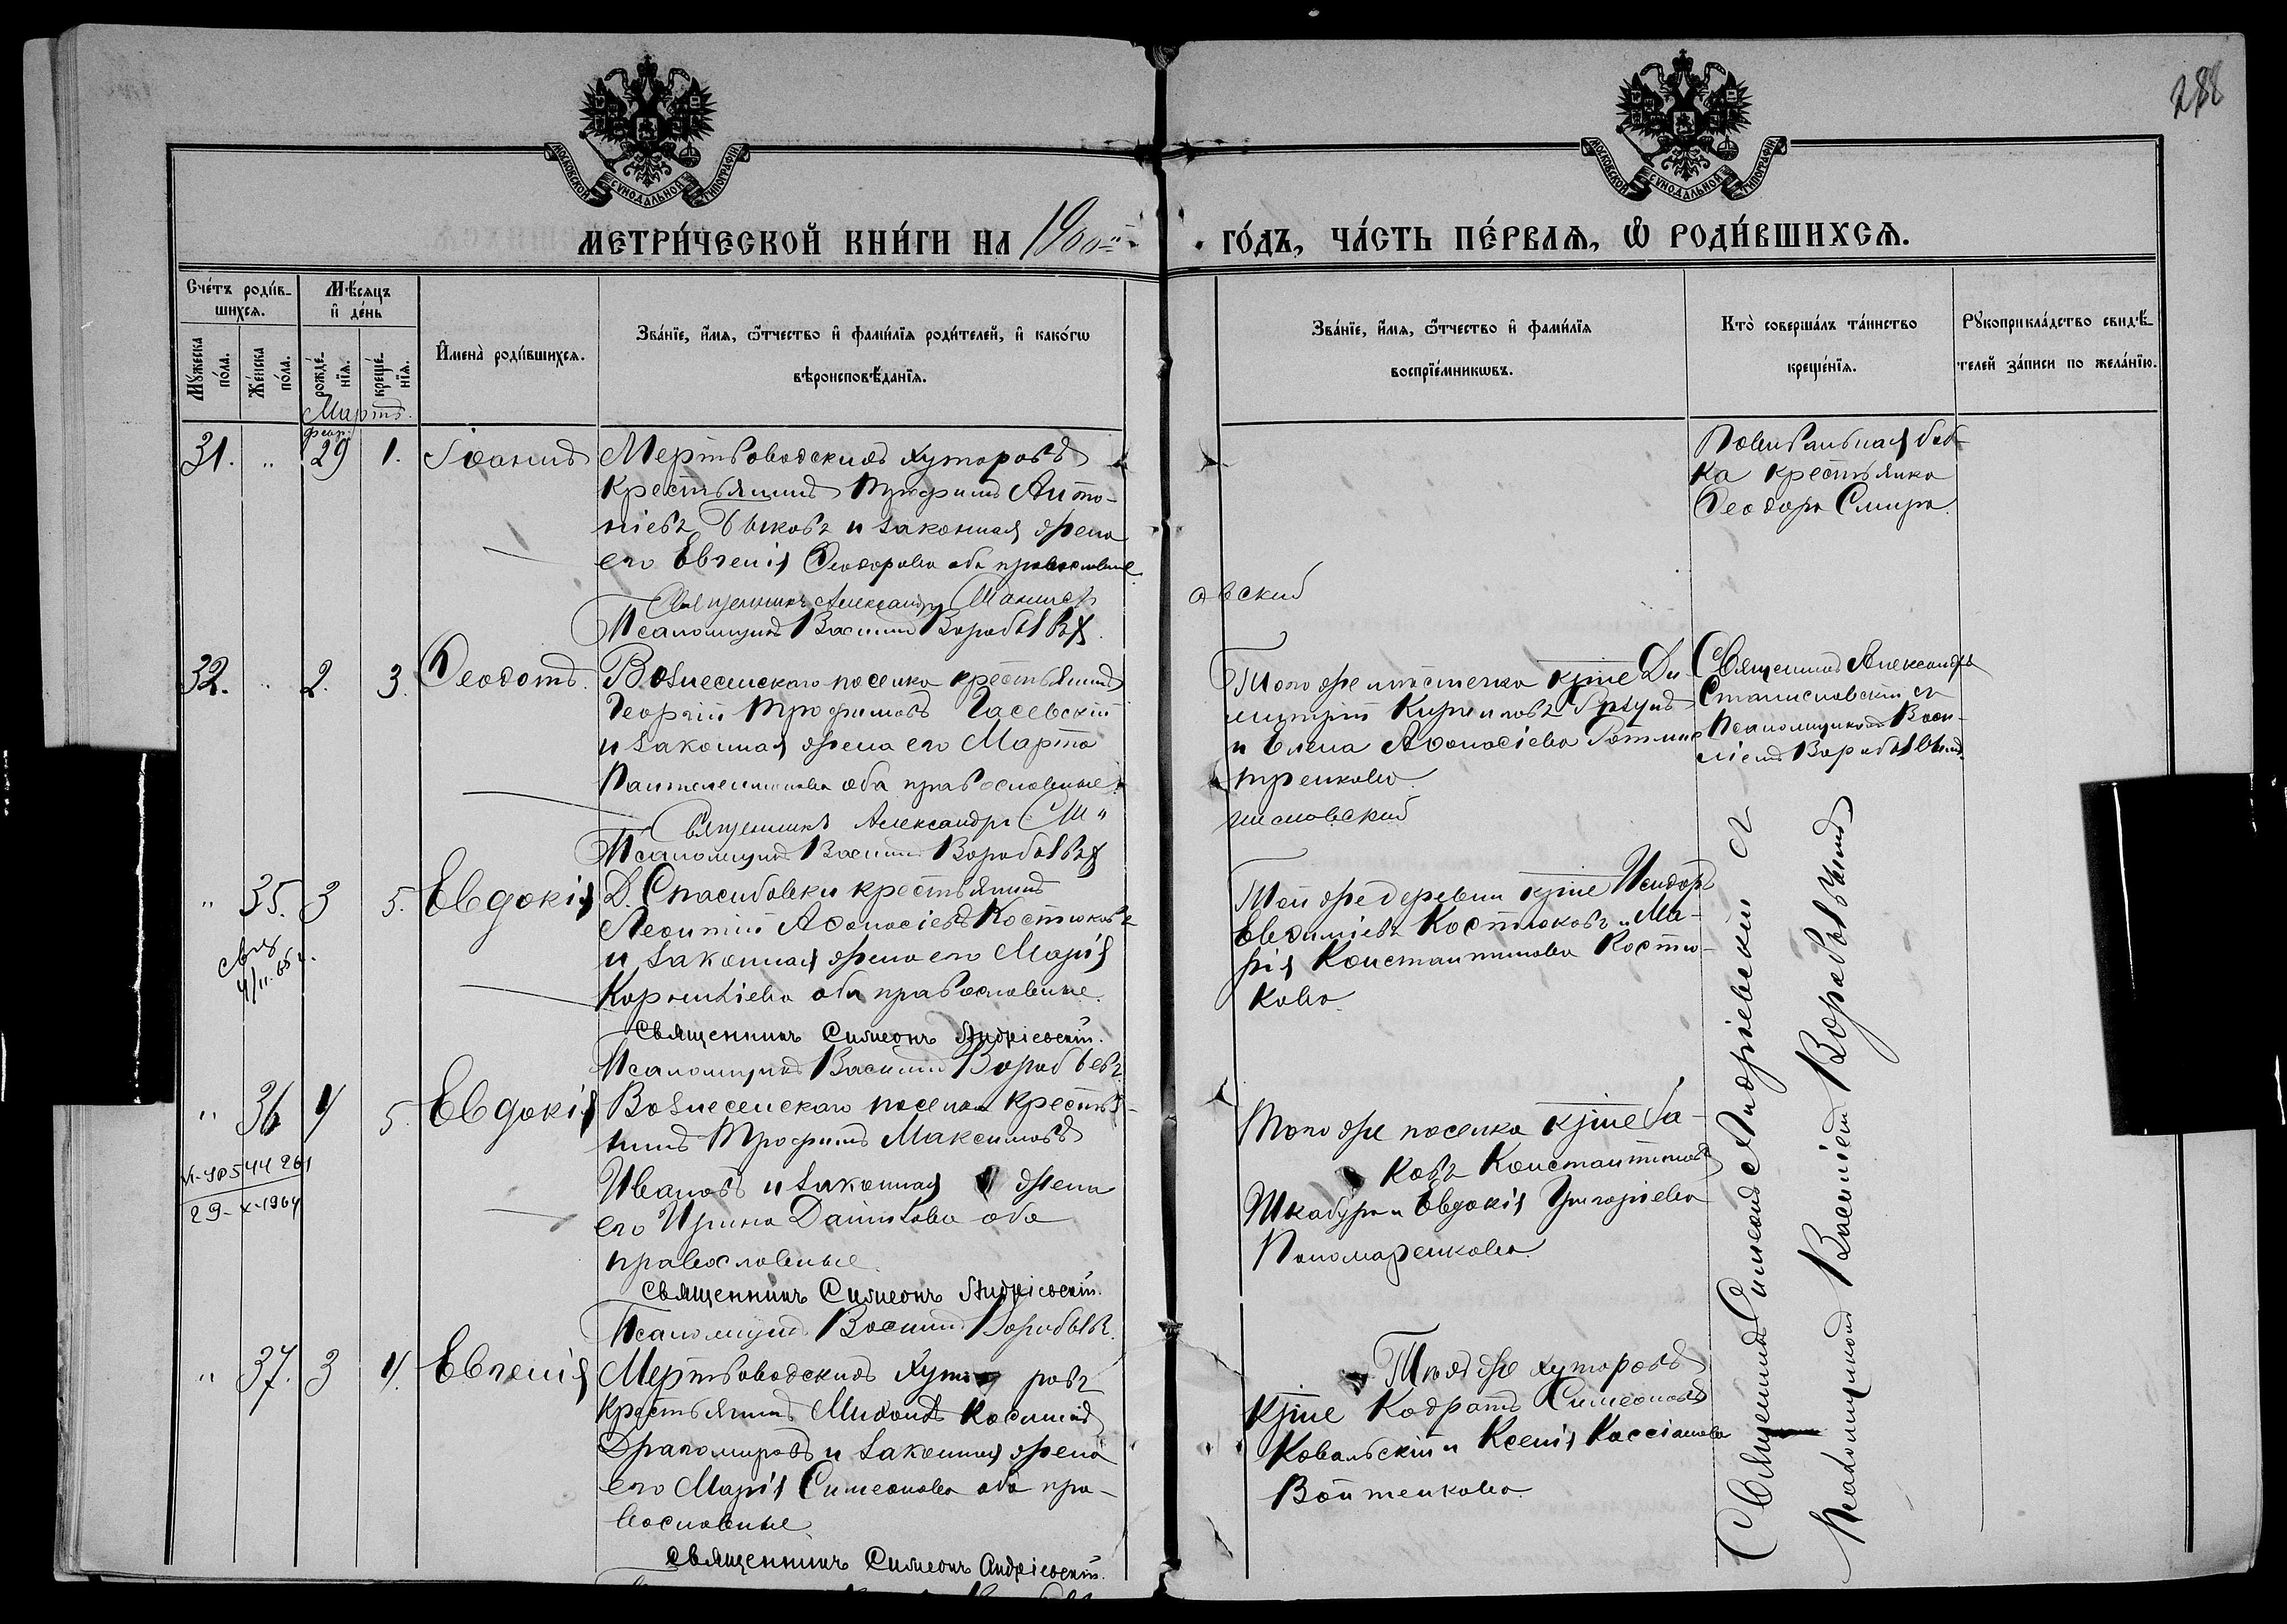 288
МОСКОВСКОЙ СУНОДАЛЬНОЙ ТИПОГРАФІИ
МОСКОВСКОЙ СУНОДАЛЬНОЙ ТИПОГРАФІИ
МЕТРИ́ЧЕСКОЙ КНИ́ГИ НА 1900й
ГО́ДЪ, ЧА́СТЬ ПЕ́РВАѦ, Ѡ҆ РОДИ́ВШИХСѦ.
Сче́тъ роди́в-
шихсѧ.
Мꙋ́жеска по́ла.
Же́нска по́ла.
Мѣ́сѧцъ
и҆ де́нь
рожде́-
нїѧ.
креще́-
нїѧ.
И҆мена̀ роди́вшихсѧ.
Зва́нїе, и҆́мѧ, ѻ҆́тчество и҆ фами́лїѧ роди́телей, и҆ како́гѡ
вѣроисповѣ́данїѧ.
Зва́нїе, и҆́мѧ, ѻ҆́тчество и҆ фами́лїѧ
воспрїе́мникѡвъ.
Кто̀ соверша́лъ та́инство
креще́нїѧ.
Рꙋкоприкла́дство свидѣ́-
телей за́писи по жела́нїю.
Мартъ.
31. " февр. 29 1. Іоаннъ
Мертвоводскихъ хуторовъ
крестьянинъ Трофимъ Анто-
ніевъ Быковъ и законная жена
его Евгенія Ѳеодорова оба православные
Священникъ Александръ Станисл
овский
Псаломщикъ Василій Воробьевъ.
Повивальная баб-
ка крестьянка
Ѳеодора Смира.
32. " 2. 3. Ѳеодотъ.
Вознесенскаго поселка крестьянинъ
Георгій Трофимовъ Гасевскій
и законная жена его Марта
Пантелеимонова оба православные.
Священникъ Александръ Ста
нисловский
Псаломщикъ Василій Воробьевъ
Того же мѣстечка кр͞не Ди
митрій Кирилловъ
и Елена Аѳанасіева
тренкова.
Священникъ Александръ
Станиславскій съ
Псаломщикомъ Васи-
ліемъ Воробьевымъ.
" 35. 3 5. Евдокія
Д. Спасибовки крестьянинъ
Леонтій Аѳанасіевъ Костюковъ
и законная жена его Марія
Корниліева оба православные.
Священникъ Симеонъ Андріевскій.
Псаломщикъ Василій Воробьевъ.
Той же деревни кр͞не Исидоръ
Евѳиміевъ Костюковъ и Ма-
рія Константинова Костю-
кова.
" 36 4 5. Евдокія
29-X-1964
Вознесенскаго поселка крестья-
нинъ Трофимъ Максимовъ
Ивановъ и законная жена
его Ирина Даниилова оба
православные.
Священникъ Симеонъ Андріевскій.
Псаломщикъ Василій Воробьевъ.
Того же поселка кр͞не Іа-
ковъ Константиновъ
Шкабура и Евдокія Григоріева
Пономаренкова.
" 37. 3 4. Евгенія
Мертвоводскихъ хуторовъ
крестьянинъ Михаилъ Косминъ
Драгомировъ и законная жена
его Марія Симеонова оба пра-
вославные.
Священникъ Симеонъ Андріевскій.
Тѣхъ же хуторовъ
кр͞не Кодратъ Симеоновъ
Ковальскій и Ксенія Кассіанова
Войтенкова.
Священникъ Симеонъ Андріевскій съ
Псаломщикомъ Василіемъ Воробьевымъ